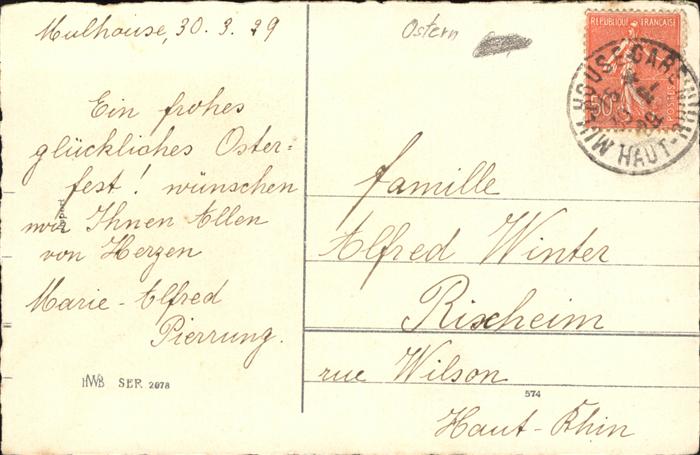 Mulhouse, 30.3.29
Ein frohes
glückliches Oster-
fest! wünschen
wir Ihnen Allen
von Herzen
Marie-Alfred
Pierrung.
HWB SER 2078
Ostern
REPUBLIQUE FRANÇAISE
50
POSTES
MULHOUSE-GARE
HAUT-RHIN
famille
Alfred Winter
Rixheim
rue Wilson
574
Haut-Rhin